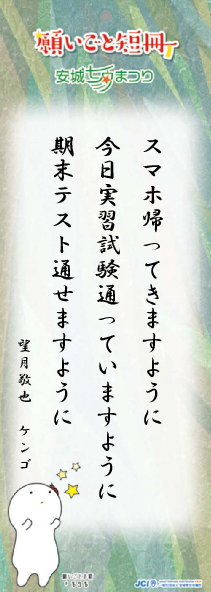 願いごと短冊
安城七夕まつり
スマホ帰ってきますように
今日実習試験通っていますように
期末テスト通せますように
望月敬也 ケンゴ
JCI